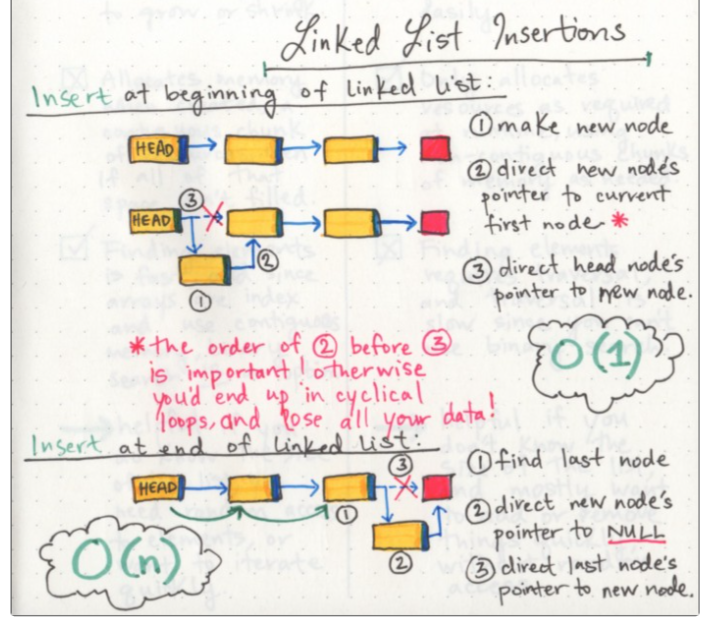 Linked List Insertions
Insert at beginning of linked list:
HEAD
① make new node
② direct new node's
pointer to current
first node. *
③ direct head node's
pointer to new node.
③
HEAD
②
①
*the order of ② before ③
is important! otherwise
you'd end up in cyclical
loops, and lose all your data!
O(1)
Insert at end of linked list:
③
HEAD
①
②
O(n)
① find last node
② direct new node's
pointer to NULL
③ direct last node's
pointer to new node.